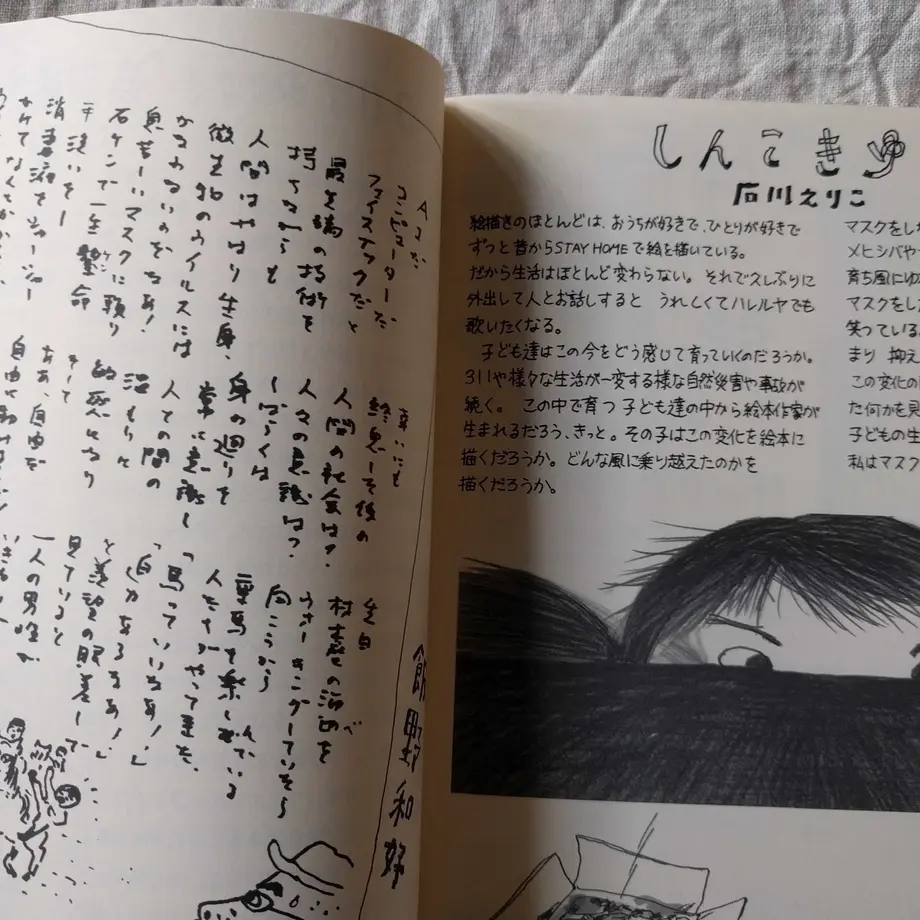 AIだ
コンピューターだ
フェイステックだと
最先端の技術を
持ちながらも
人間はやはり生身、
微生物のウイルスには
かなわないのだなあ!
息苦しいマスクに頼り
石ケンで一生懸命
手洗いをし
消毒液をシュッシュー
幸いにも
終息しその後の
人間の社会は?
人々の意識は?
しばらくは
身の廻りを
常に意識し
人との間の
そして
ああ、自由を
先日
村はずれの
ウォーキングしていたら
向こうから
乗馬を楽しんでいる
人たちがやって来た。
「馬っていいなあ!」
「自分もあるなあ!」
と羨望の眼差しで
見ていると
一人の男性が
飯野和好
しんこきゅう
石川えりこ
絵描きのほとんどは、おうちが好きで、ひとりが好きで
ずっと昔からSTAY HOMEで絵を描いている。
だから生活はほとんど変わらない。それで久しぶりに
外出して人とお話しすると うれしくてハレルヤでも
歌いたくなる。
子ども達はこの今をどう感じて育っていくのだろうか。
311や様々な生活が一変する様な自然災害や事故が
続く。この中で育つ子ども達の中から絵本作家が
生まれるだろう、きっと。その子はこの変化を絵本に
描くだろうか。どんな風に乗り越えたのかを
描くだろうか。
マスクをし
メヒシバや
育ち風にゆ
マスクをし
笑っている
まり 抑え
この変化の
た何かを見
子どもの生
私はマスク